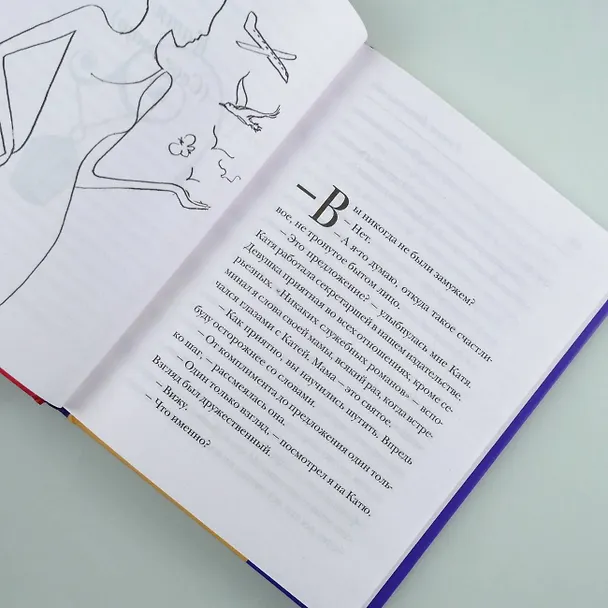 – Вы никогда не были замужем?
– Нет.
– А я-то думаю, откуда такое счастли-
вое, не тронутое бытом лицо.
– Это предложение? – улыбнулась мне Катя.
Катя работала секретаршей в нашем издательстве.
Девушка приятная во всех отношениях, кроме се-
рьезных. «Никаких служебных романов» – вспо-
минал я слова своей мамы, всякий раз, когда встре-
чался глазами с Катей. Мама – это святое.
– Как приятно, вы научились шутить. Впредь
буду осторожнее со словами.
– От комплимента до предложения один толь-
ко шаг, – рассмеялась она.
– Один только взгляд, – посмотрел я на Катю.
Взгляд был дружественный.
– Вижу.
– Что именно?